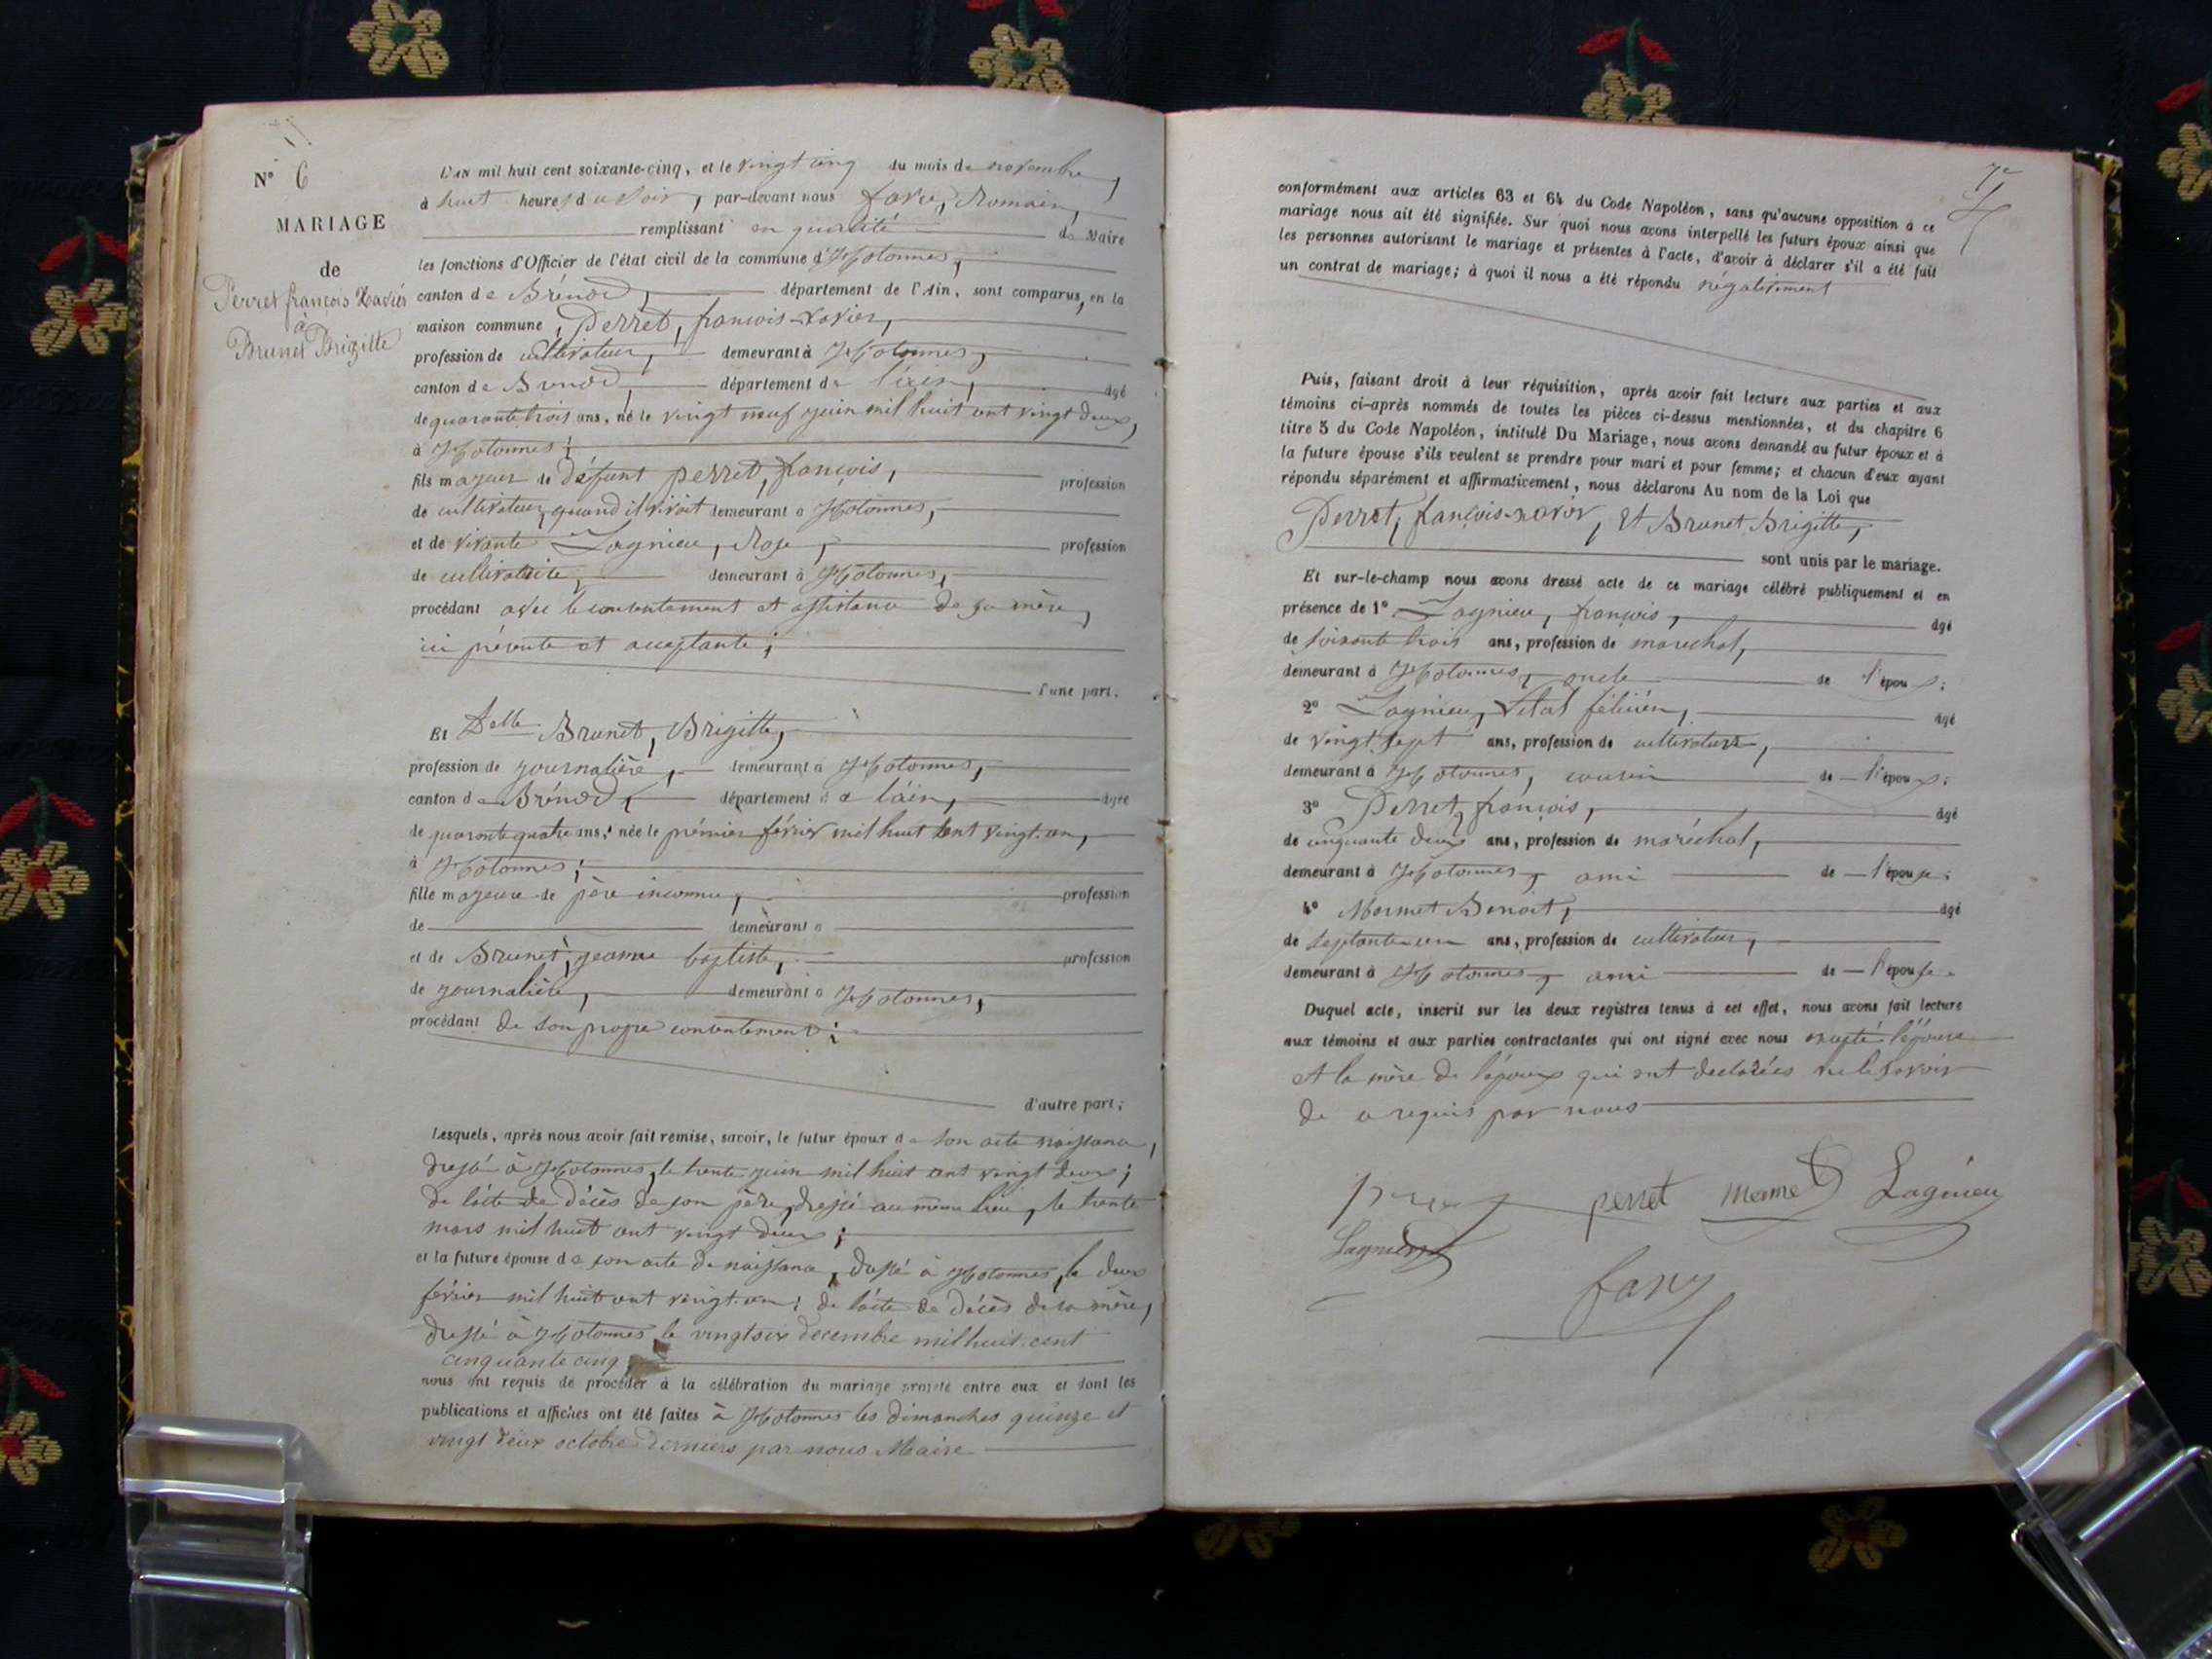 N° 6
MARIAGE
de
Perret françois Xavier
à
Brunet Brigitte
L'AN mil huit cent soixante-cinq, et le vingt cinq du mois de novembre,
à huit heures du soir, par-devant nous favre, Romain,
remplissant en qualité de Maire
les fonctions d'Officier de l'état civil de la commune d'Hotonnes,
canton de Brénod, département de l'Ain, sont comparus, en la
maison commune, Perret, françois-xavier,
profession de cultivateur, demeurant à Hotonnes,
canton de Brénod, département de l'ain, âgé
de quarante trois ans, né le vingt neuf juin mil huit cent vingt deux,
à Hotonnes;
fils majeur de défunt perret, françois, profession
de cultivateur, quand il vivait demeurant à Hotonnes,
et de vivante Lagnieu, Rose, profession
de cultivatrice, demeurant à Hotonnes,
procédant avec le consentement et assistance de sa mère,
ici présente et acceptante;
d'une part.
Et Delle Brunet, Brigitte,
profession de journalière, demeurant à Hotonnes,
canton de Brénod, département de l'ain, âgée
de quarante quatre ans, née le prémier février mil huit cent vingt-un,
à Hotonnes;
fille majeure de père inconnu, profession
de demeurant à
et de Brunet, jeanne baptiste, profession
de journalière, demeurant à Hotonnes,
procédant de son propre consentement;
d'autre part;
Lesquels, après nous avoir fait remise, savoir, le futur époux de son acte naissance,
dressé à Hotonnes, le trente juin mil huit cent vingt deux;
de l'acte de décès de son père, dressé au même lieu, le trente
mars mil huit cent vingt deux;
et la future épouse de son acte de naissance, dressé à Hotonnes, le deux
février mil huit cent vingt-un; de l'acte de décès de sa mère,
dressé à Hotonnes le vingt six decembre mil huit cent
cinquante cinq
nous ont requis de procéder à la célébration du mariage projeté entre eux et dont les
publications et affiches ont été faites à Hotonnes les dimanches quinze et
vingt deux octobre derniers par nous Maire
conformément aux articles 63 et 64 du Code Napoléon, sans qu'aucune opposition à ce
mariage nous ait été signifiée. Sur quoi nous avons interpellé les futurs époux ainsi que
les personnes autorisant le mariage et présentes à l'acte, d'avoir à déclarer s'il a été fait
un contrat de mariage; à quoi il nous a été répondu négativement
Puis, faisant droit à leur réquisition, après avoir fait lecture aux parties et aux
témoins ci-après nommés de toutes les pièces ci-dessus mentionnées, et du chapitre 6
titre 5 du Code Napoléon, intitulé Du Mariage, nous avons demandé au futur époux et à
la future épouse s'ils veulent se prendre pour mari et pour femme; et chacun d'eux ayant
répondu séparément et affirmativement, nous déclarons Au nom de la Loi que
Perret, françois-xavier, Et Brunet, Brigitte,
sont unis par le mariage.
Et sur-le-champ nous avons dressé acte de ce mariage célébré publiquement et en
présence de 1° Lagnieu, françois, âgé
de soixante trois ans, profession de marechal,
demeurant à Hotonnes, oncle de l'époux;
2° Lagnieu, Vital félicien, âgé
de vingt sept ans, profession de cultivateur,
demeurant à Hotonnes, cousin de l'époux;
3° Perret, françois, âgé
de cinquante deux ans, profession de maréchal,
demeurant à Hotonnes, ami de l'épouse;
4° Mermet Benoit, âgé
de septante-un ans, profession de cultivateur,
demeurant à Hotonnes, ami de l'épouse.
Duquel acte, inscrit sur les deux registres tenus à cet effet, nous avons fait lecture
aux témoins et aux parties contractantes qui ont signé avec nous excepté l'épouse
et la mère de l'époux qui ont declarées ne le savoir
de ce requis par nous
perret mermet Lagnieu
Lagnieu
favre